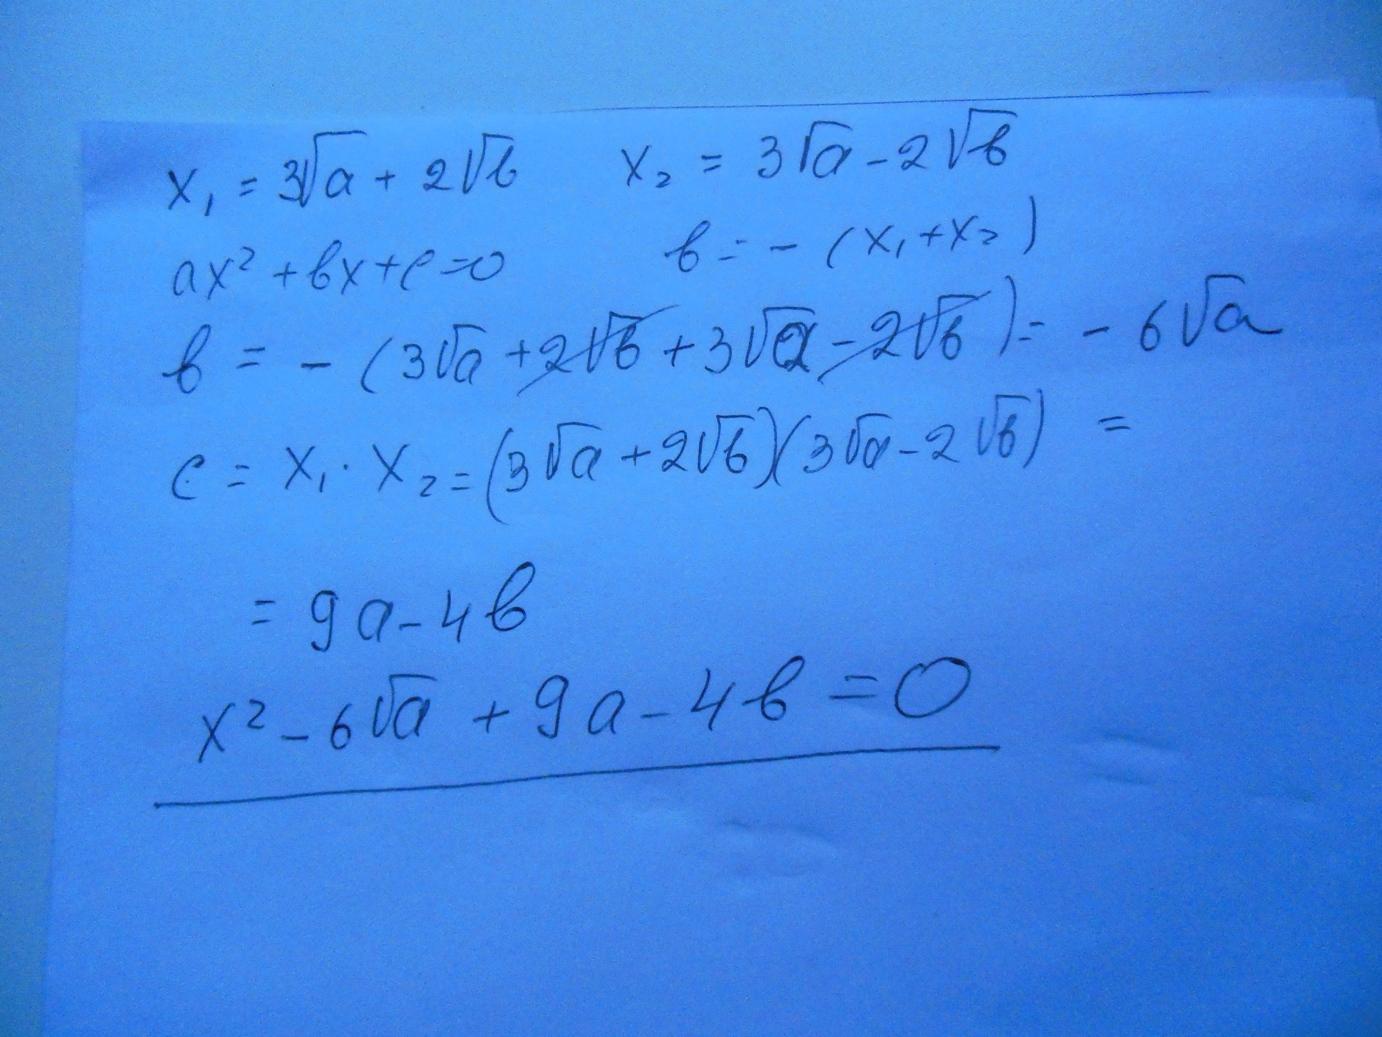 x₁ = 3√a + 2√в x₂ = 3√a - 2√в
ax² + вx + c = 0 в = - (x₁ + x₂)
в = - (3√a + 2√в + 3√a - 2√в) = - 6√a
c = x₁ · x₂ = (3√a + 2√в)(3√a - 2√в) =
= 9a - 4в
x² - 6√a + 9a - 4в = 0